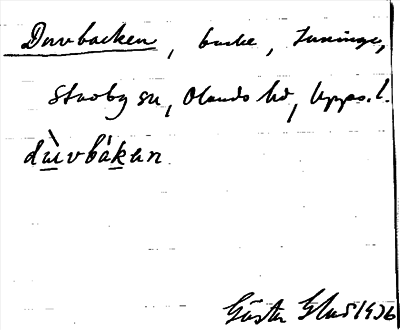 Duvbacken, backe, Tuninge,
Stavby sn, Olands hd, Upps. l.
dùvbákan
Gösta 1936